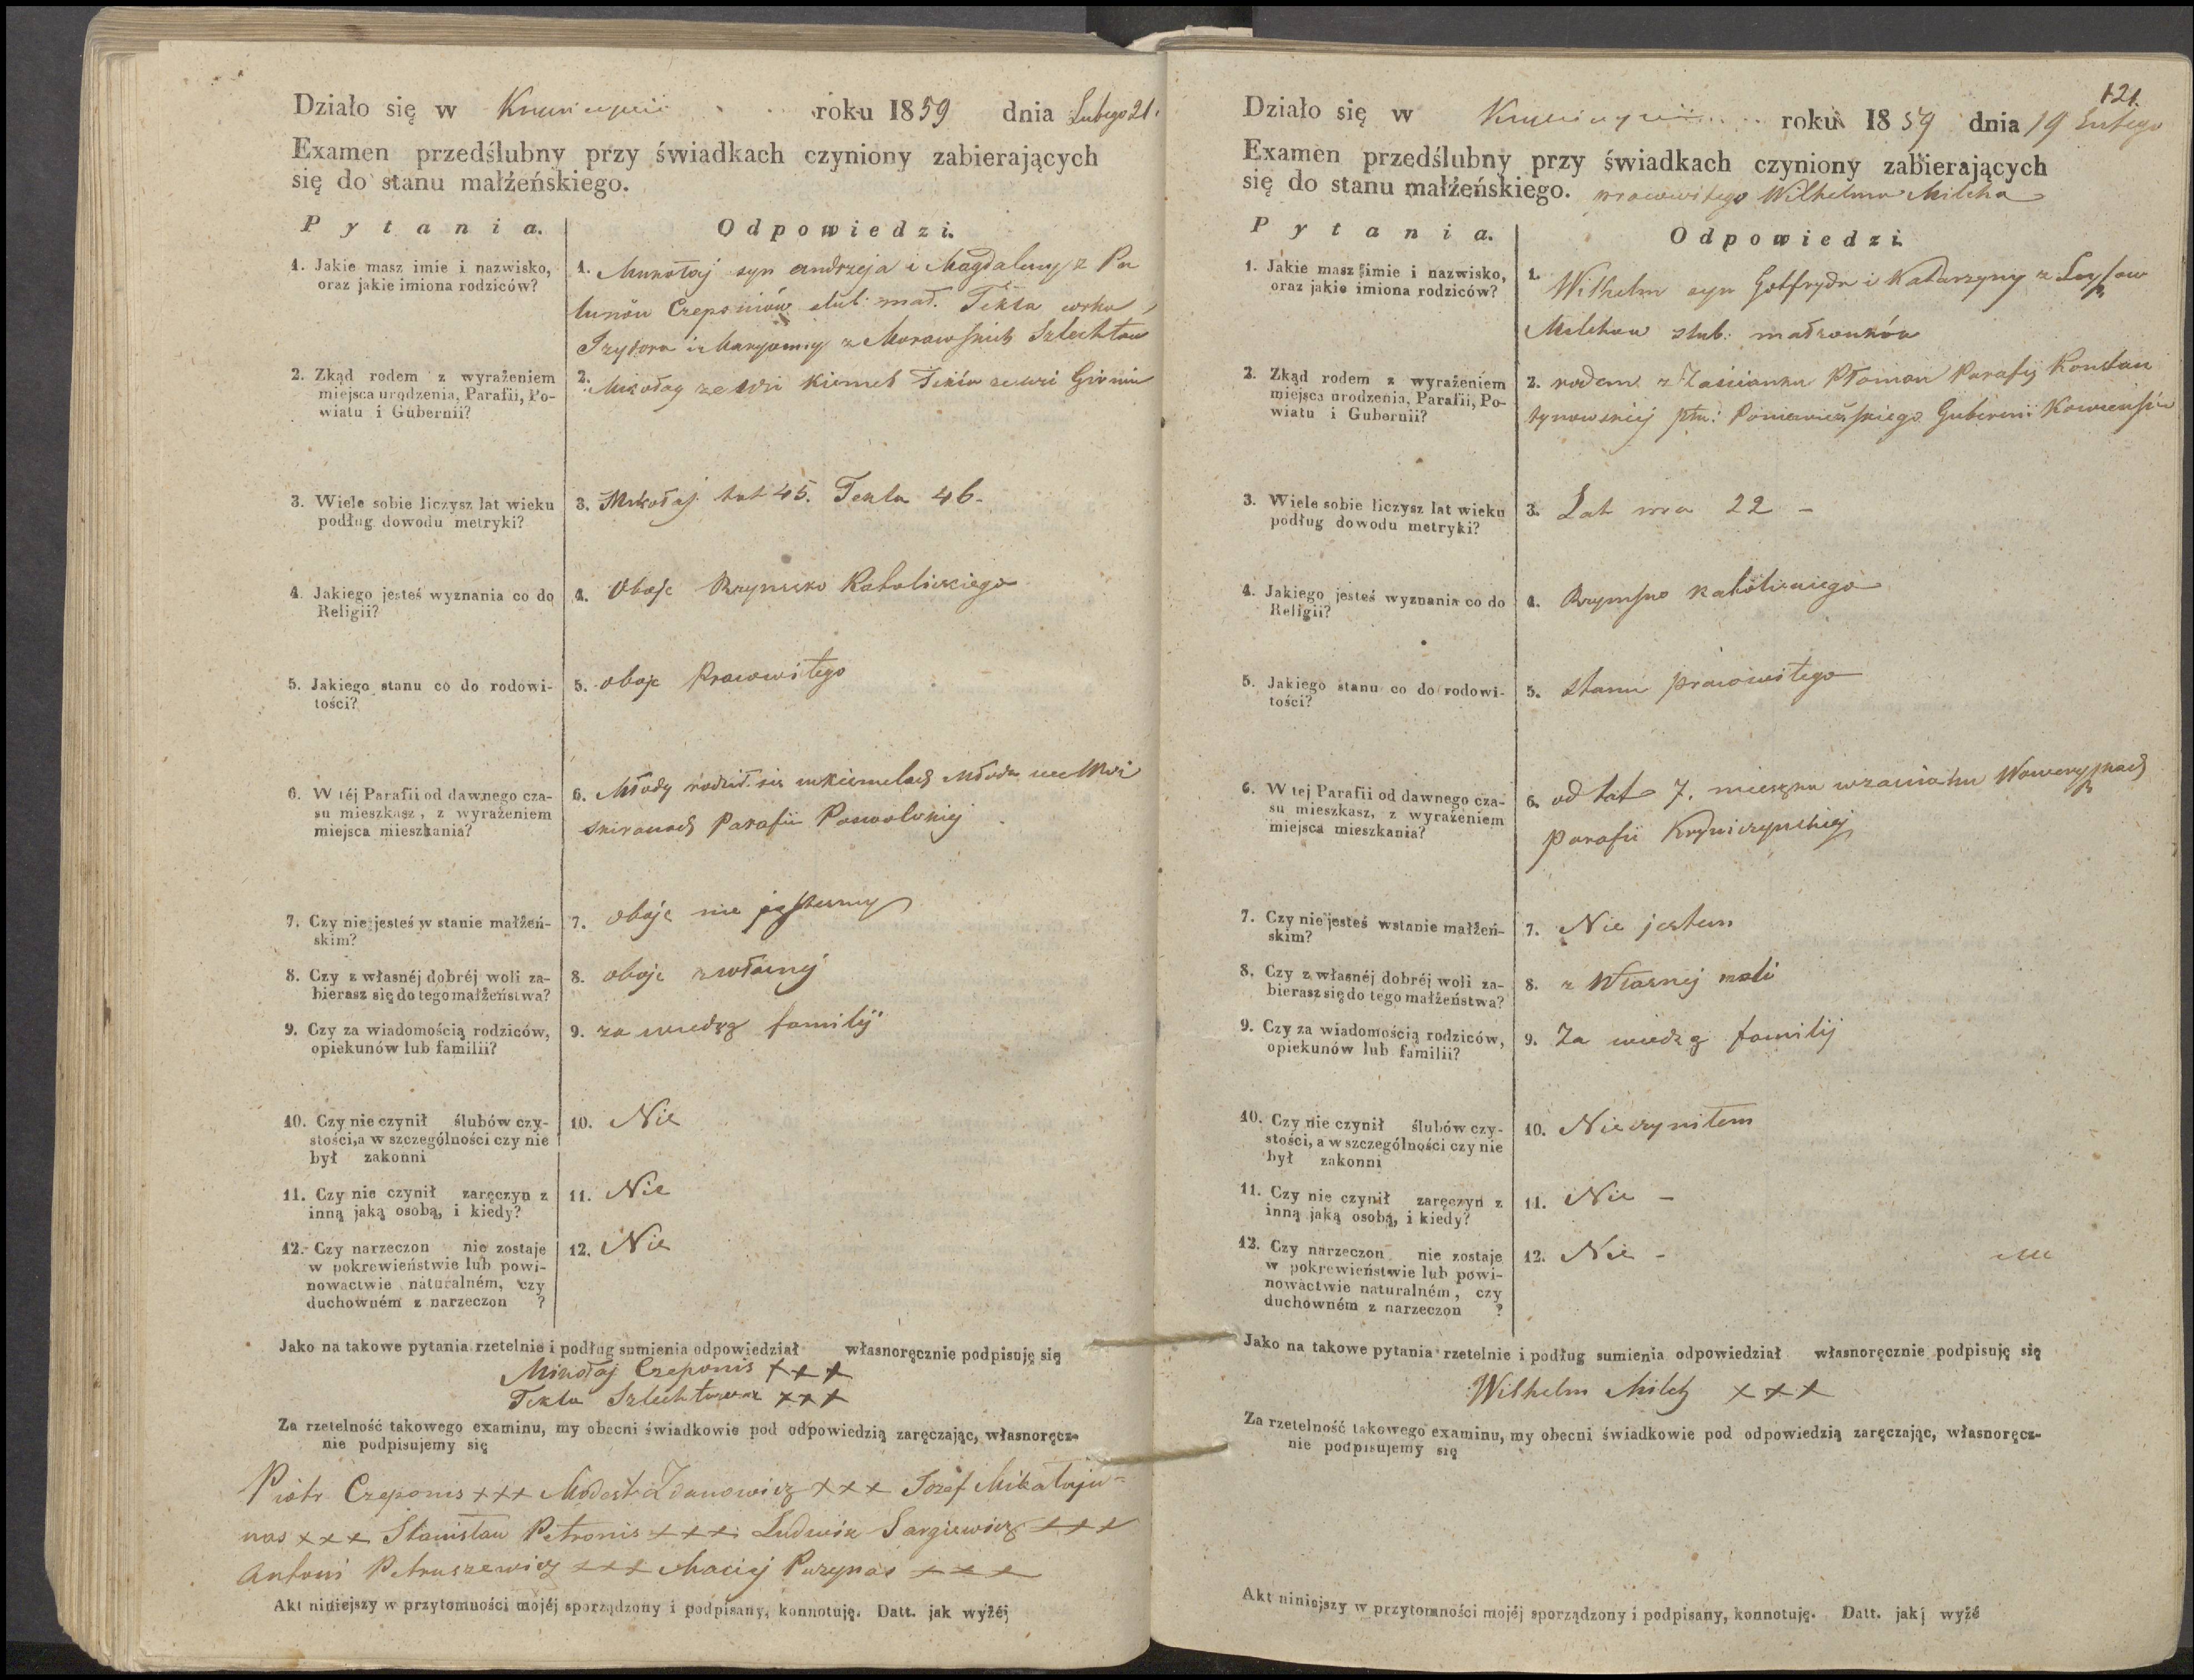 Działo się w roku 1859 dnia Lutego 21.
Examen przedślubny przy świadkach czyniony zabierających
się do stanu małżeńskiego.
Pytania. Odpowiedzi.
1. Jakie masz imie i nazwisko,
oraz jakie imiona rodziców?
1. syn andrzeja i Magdaleny z
Czeponiów ślub: mał. Tekla
Izydora i Maryanny z Morawskich
2. Zkąd rodem z wyrażeniem
miejsca urodzenia, Parafii, Po-
wiatu i Gubernii?
2. Mikołaj ze wsi Tekla ze wsi
3. Wiele sobie liczysz lat wieku
podług dowodu metryki?
3. Mikołaj lat 45. Tekla 46.
4. Jakiego jesteś wyznania co do
Religii?
4. Oboje Rzymsko Katolickiego
5. Jakiego stanu co do rodowi-
tości?
5. oboje Pracowitego
6. W téj Parafii od dawnego cza-
su mieszkasz, z wyrażeniem
miejsca mieszkania?
6. Młody rodził się Młoda we Wsi
Parafii
7. Czy nie jesteś w stanie małżeń-
skim?
7. oboje nie jesteśmy
8. Czy z własnéj dobréj woli za-
bierasz się do tego małżeństwa?
8. oboje z własnej
9. Czy za wiadomością rodziców,
opiekunów lub familii?
9. za wiedzą familij
10. Czy nie czynił ślubów czy-
stości, a w szczególności czy nie
był zakonni
10. Nie
11. Czy nie czynił zaręczyn z
inną jaką osobą, i kiedy?
11. Nie
12. Czy narzeczon nie zostaje
w pokrewieństwie lub powi-
nowactwie naturalném, czy
duchowném z narzeczon ?
12. Nie
Jako na takowe pytania rzetelnie i podług sumienia odpowiedział własnoręcznie podpisuję się
Mikołaj Czeponis +++
Tekla +++
Za rzetelność takowego examinu, my obecni świadkowie pod odpowiedzią zaręczając, własnoręcz-
nie podpisujemy się
Piotr Czeponis +++ Modest Zdanowicz +++ Jozef Mikołaju=
nas +++ Stanisław Petronis +++ Ludwik Sargiewicz +++
Antoni Petruszewicz +++ Maciej Puzynas +++
Akt niniejszy w przytomności mojéj sporządzony i podpisany, konnotuję. Datt. jak wyżéj
121.
Działo się w roku 1859 dnia 19 Lutego
Examen przedślubny przy świadkach czyniony zabierających
się do stanu małżeńskiego. pracowitego Wilhelma Milcha
Pytania. Odpowiedzi.
1. Jakie masz imie i nazwisko,
oraz jakie imiona rodziców?
1. Wilhelm syn Gotfryda i Katarzyny z
Milchow ślub: małżonków
2. Zkąd rodem z wyrażeniem
miejsca urodzenia, Parafii, Po-
wiatu i Gubernii?
2. rodem z Zaścianku Parafij Konstan
tynowskiej ptu: Poniewieżskiego Gubernii
3. Wiele sobie liczysz lat wieku
podług dowodu metryki?
3. Lat ma 22 -
4. Jakiego jesteś wyznania co do
Religii?
4. Rzymsko katolickiego
5. Jakiego stanu co do rodowi-
tości?
5. Stanu pracowitego
6. W tej Parafii od dawnego cza-
su mieszkasz, z wyrażeniem
miejsca mieszkania?
6. od lat 7. mieszka
Parafii
7. Czy nie jesteś w stanie małżeń-
skim?
7. Nie jestem
8. Czy z własnéj dobréj woli za-
bierasz się do tego małżeństwa?
8. z Własnej woli
9. Czy za wiadomością rodziców,
opiekunów lub familii?
9. Za wiedzą familij
10. Czy nie czynił ślubów czy-
stości, a w szczególności czy nie
był zakonni
10. Nieczyniłem
11. Czy nie czynił zaręczyn z
inną jaką osobą, i kiedy?
11. Nie -
12. Czy narzeczon nie zostaje
w pokrewieństwie lub powi-
nowactwie naturalném, czy
duchowném z narzeczon ?
12. Nie -
Jako na takowe pytania rzetelnie i podług sumienia odpowiedział własnoręcznie podpisuję się
Wilhelm Milch +++
Za rzetelność takowego examinu, my obecni świadkowie pod odpowiedzią zaręczając, własnoręcz-
nie podpisujemy się
Akt niniejszy w przytomności mojéj sporządzony i podpisany, konnotuję. Datt. jak wyżé